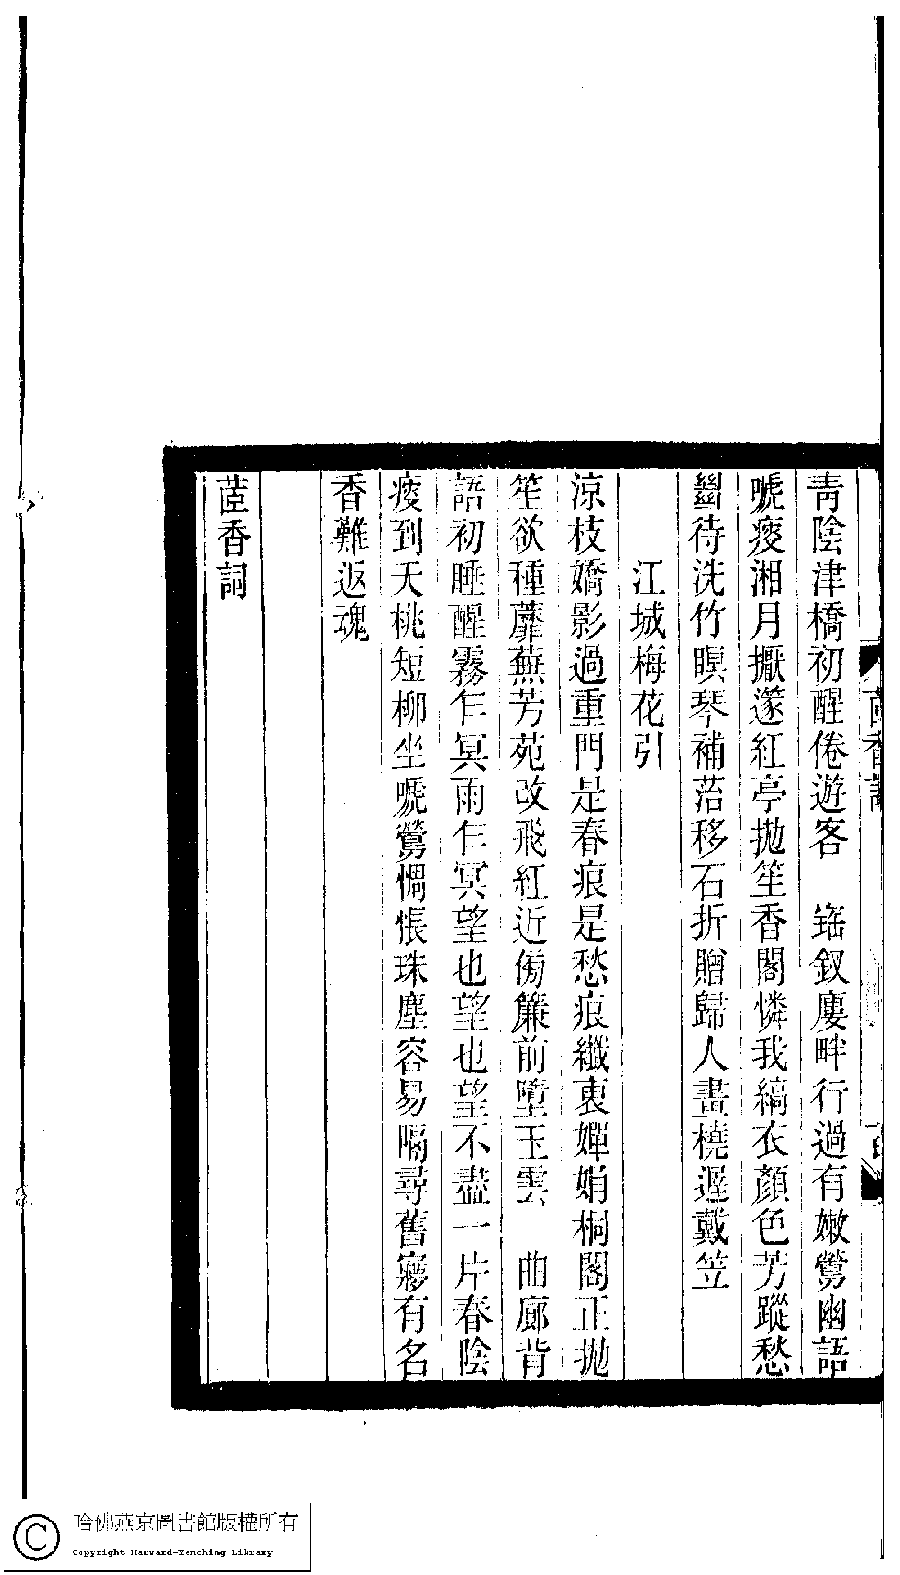 青陰津橋初醒倦遊客　瑤釵廔畔行過有嫩鶯幽語
嗁痠湘月擫篴紅亭拋笙香閣憐我縞衣顏色芳蹤愁
齧待洗竹瞑琴補萿移石折贈歸人畫橈遲戴笠
江城梅花引
涼枝嬌影過重門是春痕是愁痕纖裏嬋娟桐閣正拋
笙欲種蘼蕪芳苑改飛紅近傍簾前墮玉雲　曲廊背
語初睡醒霧乍冥雨乍冥望也望也望不盡一片春陰
痠到天桃短柳坐嗁鶯惆悵珠塵容易隔尋舊寱有名
香難返魂
茝香詞
茝香詞
哈佛燕京圖書館版權所有
Copyright Harvard-Yenching Library